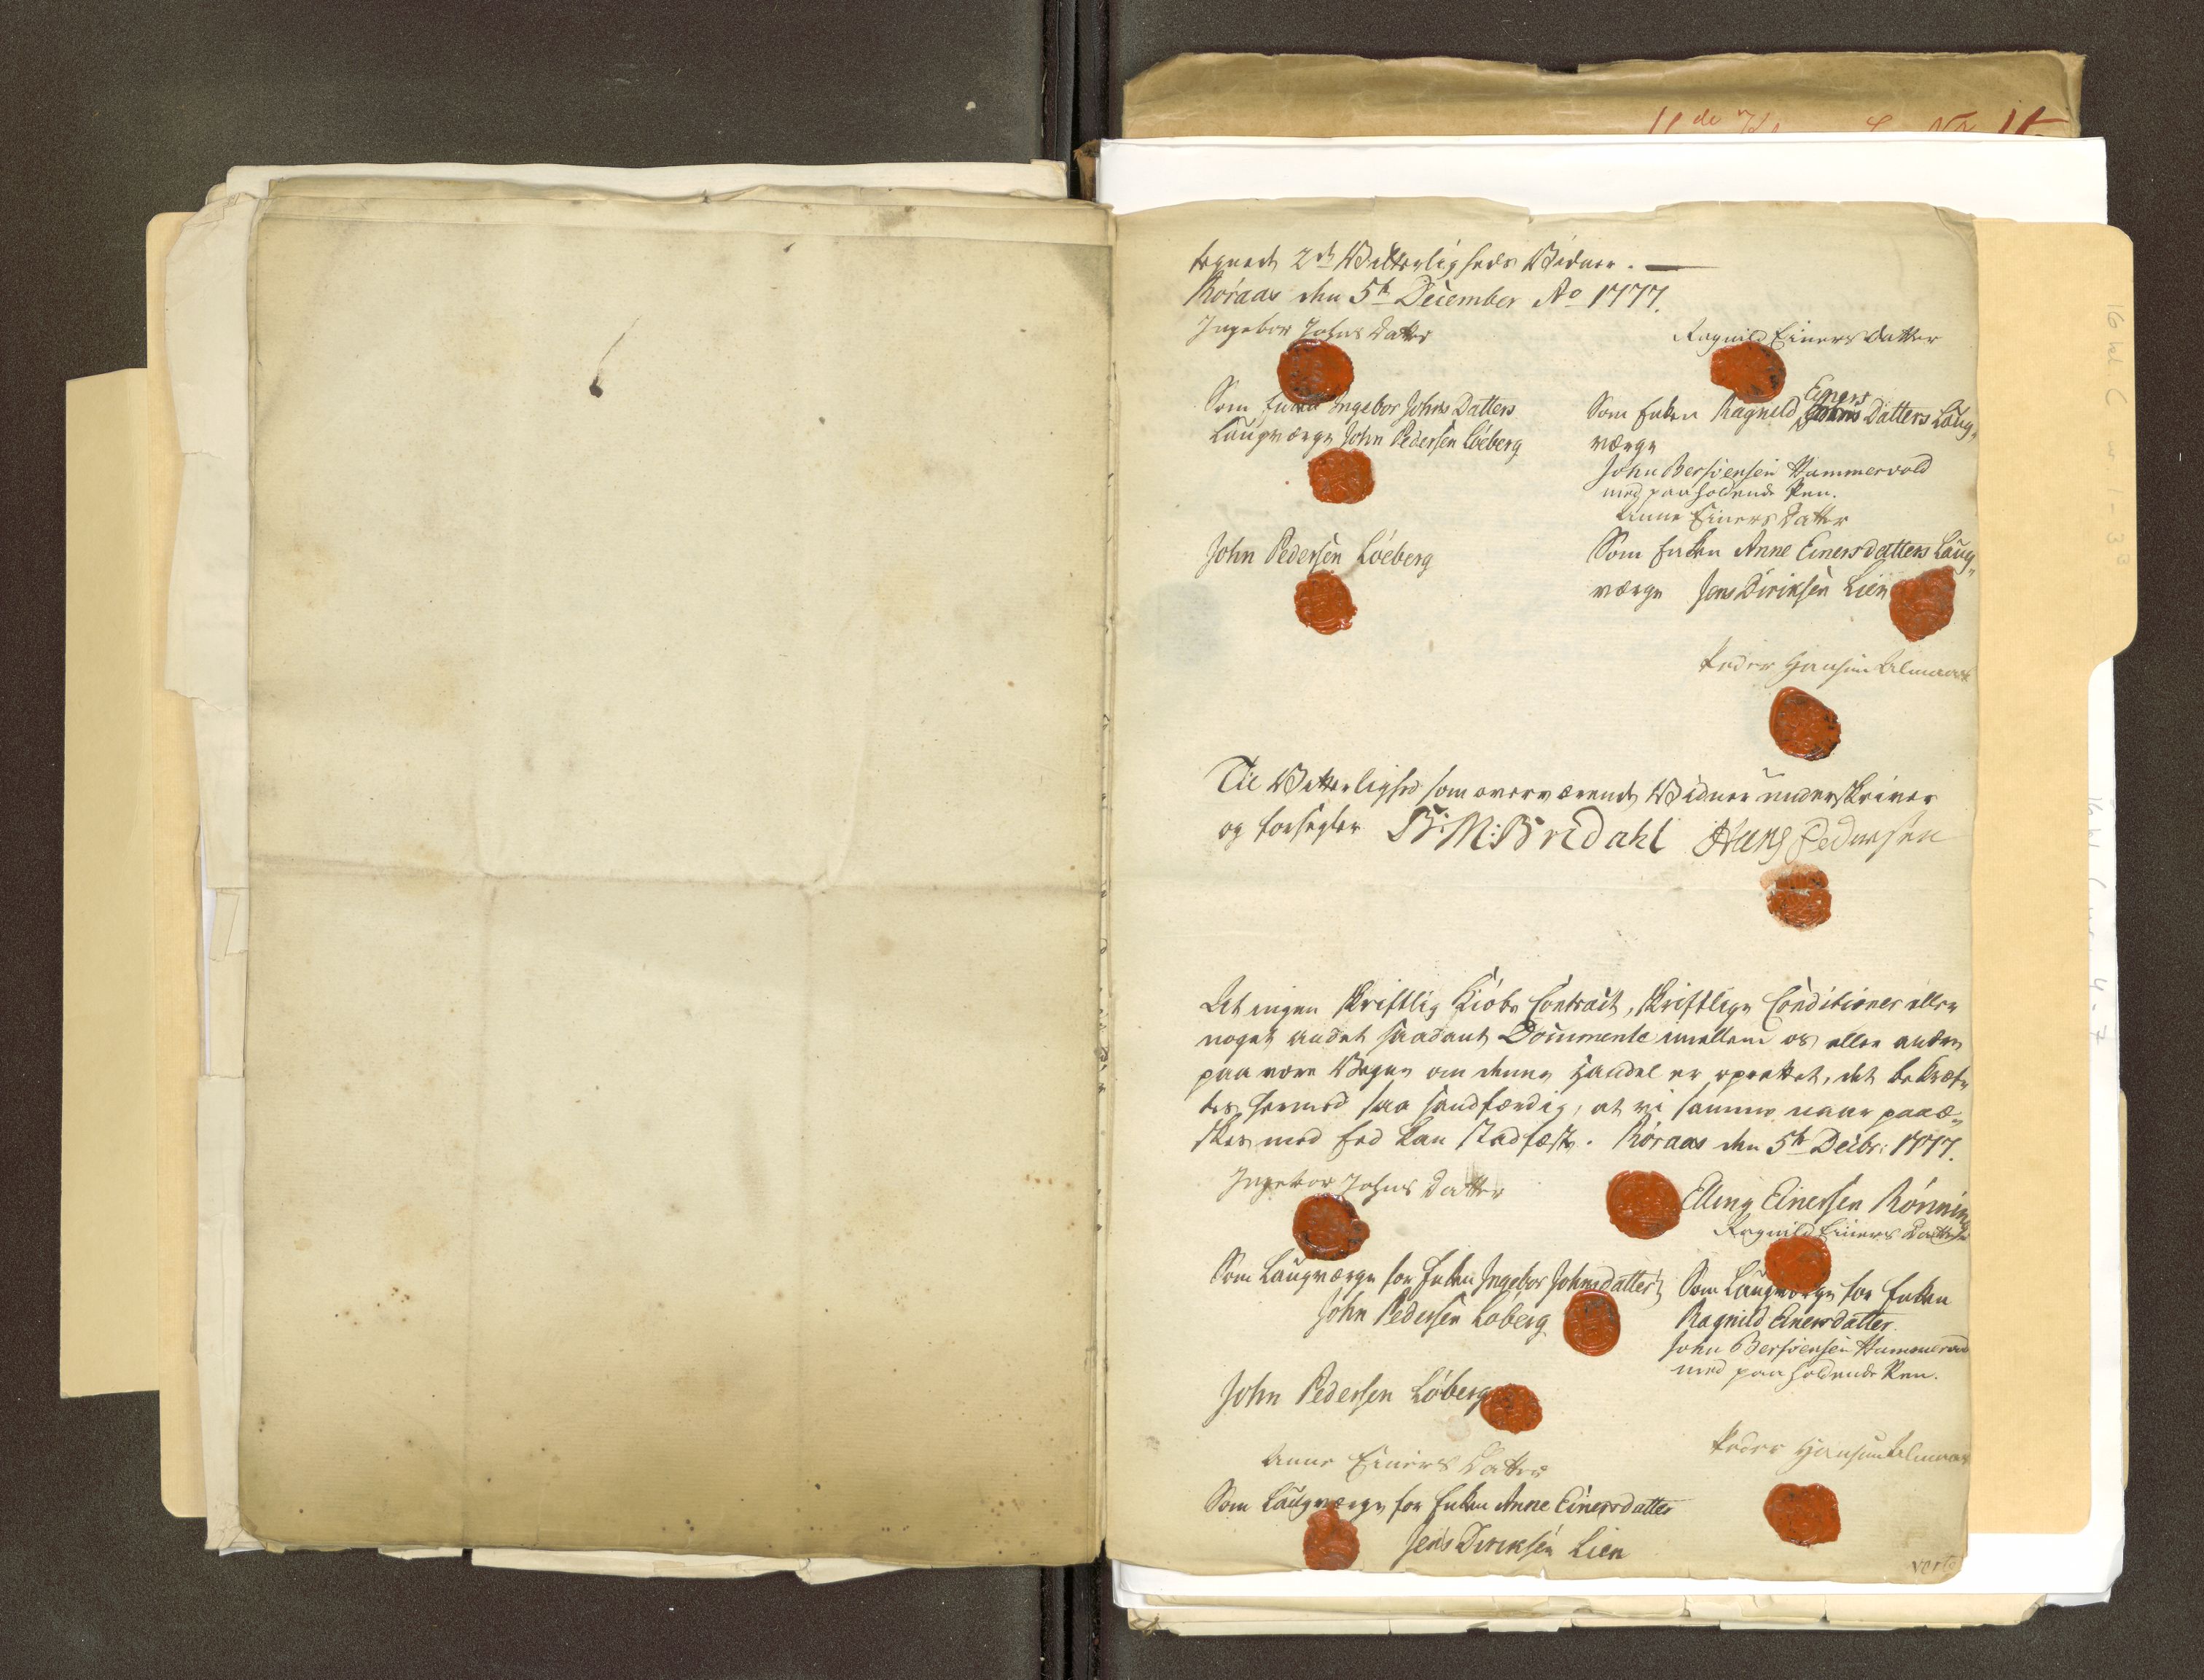 tegnede 2de Vitterligheds Vidner. —
Röraas den 5te December Ao 1777.
Ingebor Johns Datter
Ragnild Einers Datter
Som Enken Ingebor Johns Datters
Laugværge John Pedersen Löeberg
Einers
Som Enken Ragnild Johns Datters Laug„
værge
John Bersvensen Hammervold
med paaholdende Pen.
Anne Einers Datter
John Pedersen Löeberg
Som Enken Anne Einersdatters Laug„
værge Jens Diriksen Lien
Peder Hansen Almaas
Til Vitterlighed som overværende Vidner underskriver
og forsegler B: M: Bredahl Hans Pedersen
At ingen skriftlig Kiöbe Contract, skriftlige Conditioner eller
noget andet saadant Documente imellem os eller andre
paa vore Vegne om denne Handel er oprettet, det bekræf„
tes hermed saa sandfærdig, at vi samme naar paaæ„
skes med Eed kan stadfæste. Röraas den 5te Decbr: 1777.
Ingebor Johns Datter
Elling Einersen Rönning
Ragnild Einers Datter
Som Laugværge for Enken Ingebor Johnsdatter
John Pedersen Löberg
Som Laugværge for Enken
Ragnild Einersdatter.
John Bersvensen Hammervold
med paaholdende Pen.
John Pedersen Löberg
Peder Hansen Almaas
Anne Einers Datter
Som Laugværge for Enken Anne Einersdatter
Jens Diriksen Lien
verte